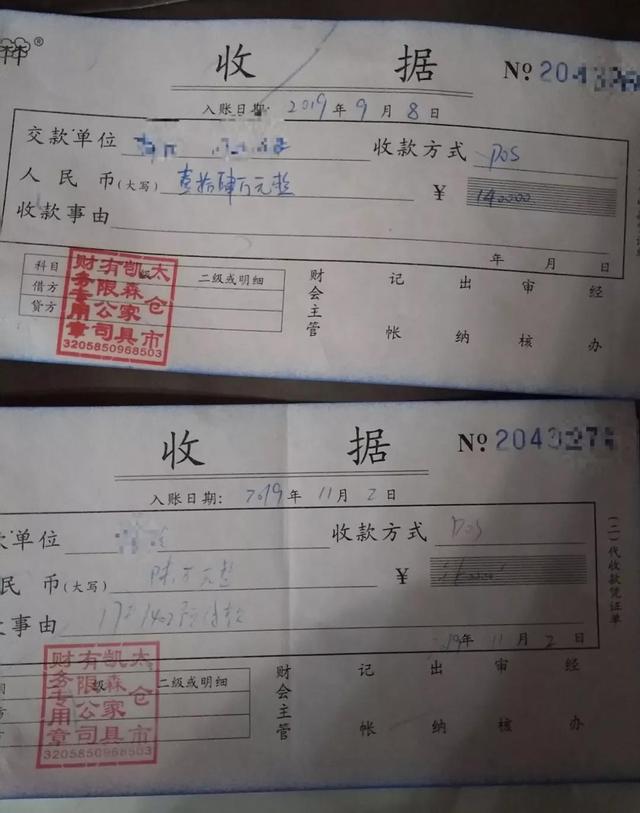 收 据 Nº 204
入账日期: 2019 年 9 月 8 日
交款单位 收款方式 POS
人民币(大写) 壹拾肆万元整 ¥ 140000
收款事由
年 月 日
科目 级 二级或明细
借方
贷方
财会主管 记帐 出纳 审核 经办
太仓市凯森家具有限公司财务专用章
3205850968503
收 据 Nº 204
入账日期: 2019 年 11 月 2 日
款单位 收款方式 POS
民 币(大写) 万元整 ¥
事由
2019年 11 月 2 日
级 二级或明细
财会主管 记帐 出纳 审核 经办
(二)代收款凭证单
太仓市凯森家具有限公司财务专用章
3205850968503